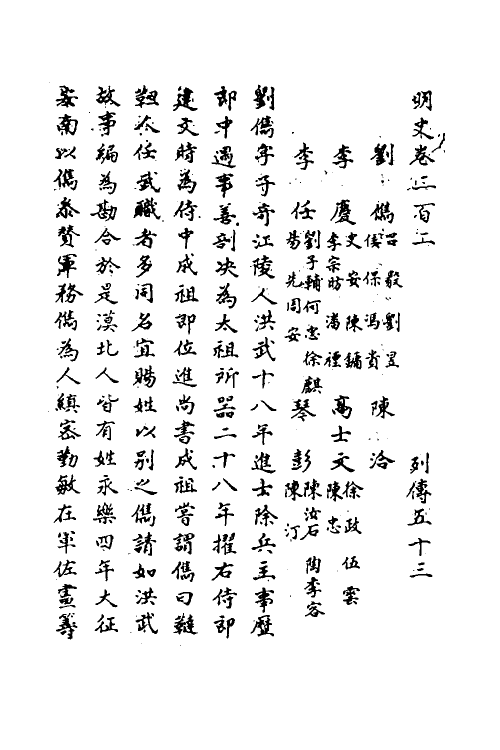 明史卷三百二 列傳五十三
劉儁 呂毅 劉昱 侯保 馮貴 陳洽
李慶 史安 陳鏞 李宗昉 潘禋 高士文 徐政 伍雲 陳忠
李任 劉子輔 何忠 徐麒 易先 周安 琴彭 陳汝石 陶季容 陳汀
劉儁字子奇江陵人洪武十八年進士除兵主事歷
郎中遇事善剖决為太祖所器二十八年擢右侍郎
建文時為侍中成祖即位進尚書成祖嘗謂儁曰韃
靼人任武職者多同名宜賜姓以別之儁請如洪武
故事編為勘合於是漠北人皆有姓永樂四年大征
安南以儁叅贊軍務儁為人縝密勤敏在軍佐畫籌